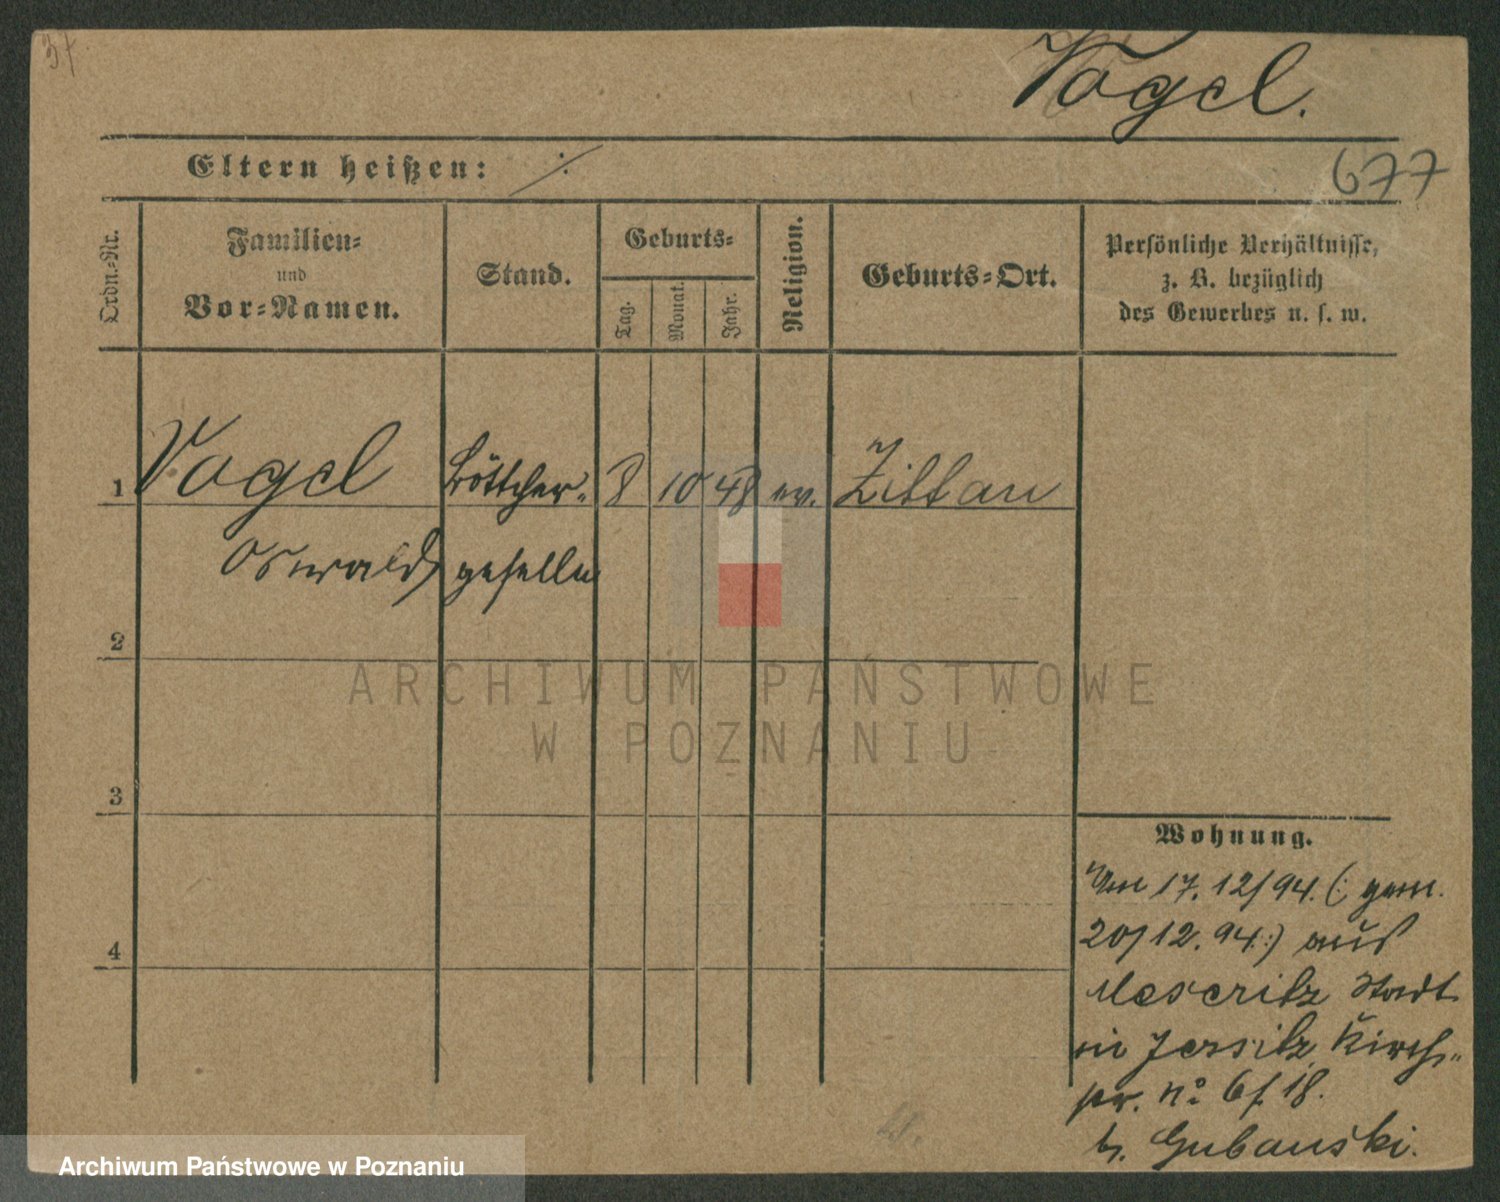 37
Vogel.
Eltern heißen: ·/·
677
Ordn.-Nr.
Familien-
und
Vor-Namen.
Stand.
Geburts-
Tag.
Monat.
Jahr.
Religion.
Geburts-Ort.
Persönliche Verhältnisse,
z. B. bezüglich
des Gewerbes u. s. w.
1 Vogel Böttcher- 8 10 48 ev. Zittau
Oswald geselle
2
ARCHIWUM PAŃSTWOWE
W POZNANIU
3
Wohnung.
Am 17.12/94. (: gem.
20/12.94.:) aus
4
Meseritz Stadt
in Jersitz, Kirch-
str. No 6 f. 18.
b. Gubanski.
Archiwum Państwowe w Poznaniu